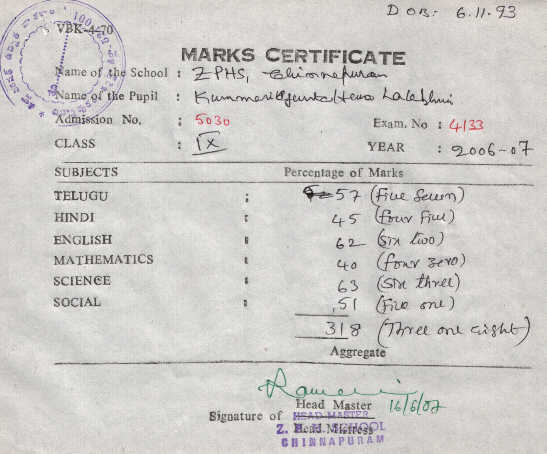 DOB: 6.11.93
VBK-4-70
MARKS CERTIFICATE
Name of the School : ZPHS, Chinnapuram
Name of the Pupil :
Admission No. : 5030 Exam. No : 4133
CLASS : IX YEAR : 2006-07
SUBJECTS Percentage of Marks
TELUGU : 57 (five seven)
HINDI : 45 (four five)
ENGLISH : 62 (six two)
MATHEMATICS : 40 (four zero)
SCIENCE : 63 (six three)
SOCIAL : 51 (five one)
318 (Three one eight)
Aggregate
Head Master 16/6/07
Signature of HEAD-MASTER
Head Mistress
Z. P. H. SCHOOL
CHINNAPURAM